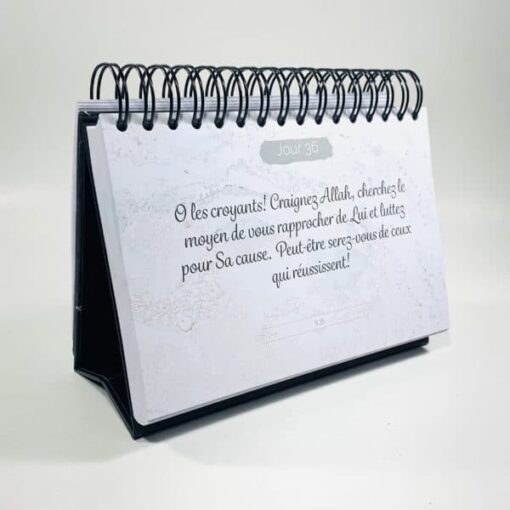 Jour 36
O les croyants! Craignez Allah, cherchez le
moyen de vous rapprocher de Lui et luttez
pour Sa cause. Peut-être serez-vous de ceux
qui réussissent!